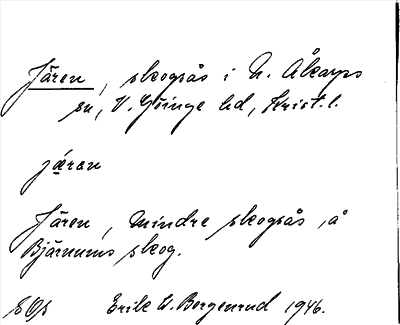 Jären, skogsås i N. Åkarps
sn, V. Göinge hd, Krist. l.
jǽrən
Jären, mindre skogsås, å
Bjärnums skog.
Erik W. Bergenrud 1946.